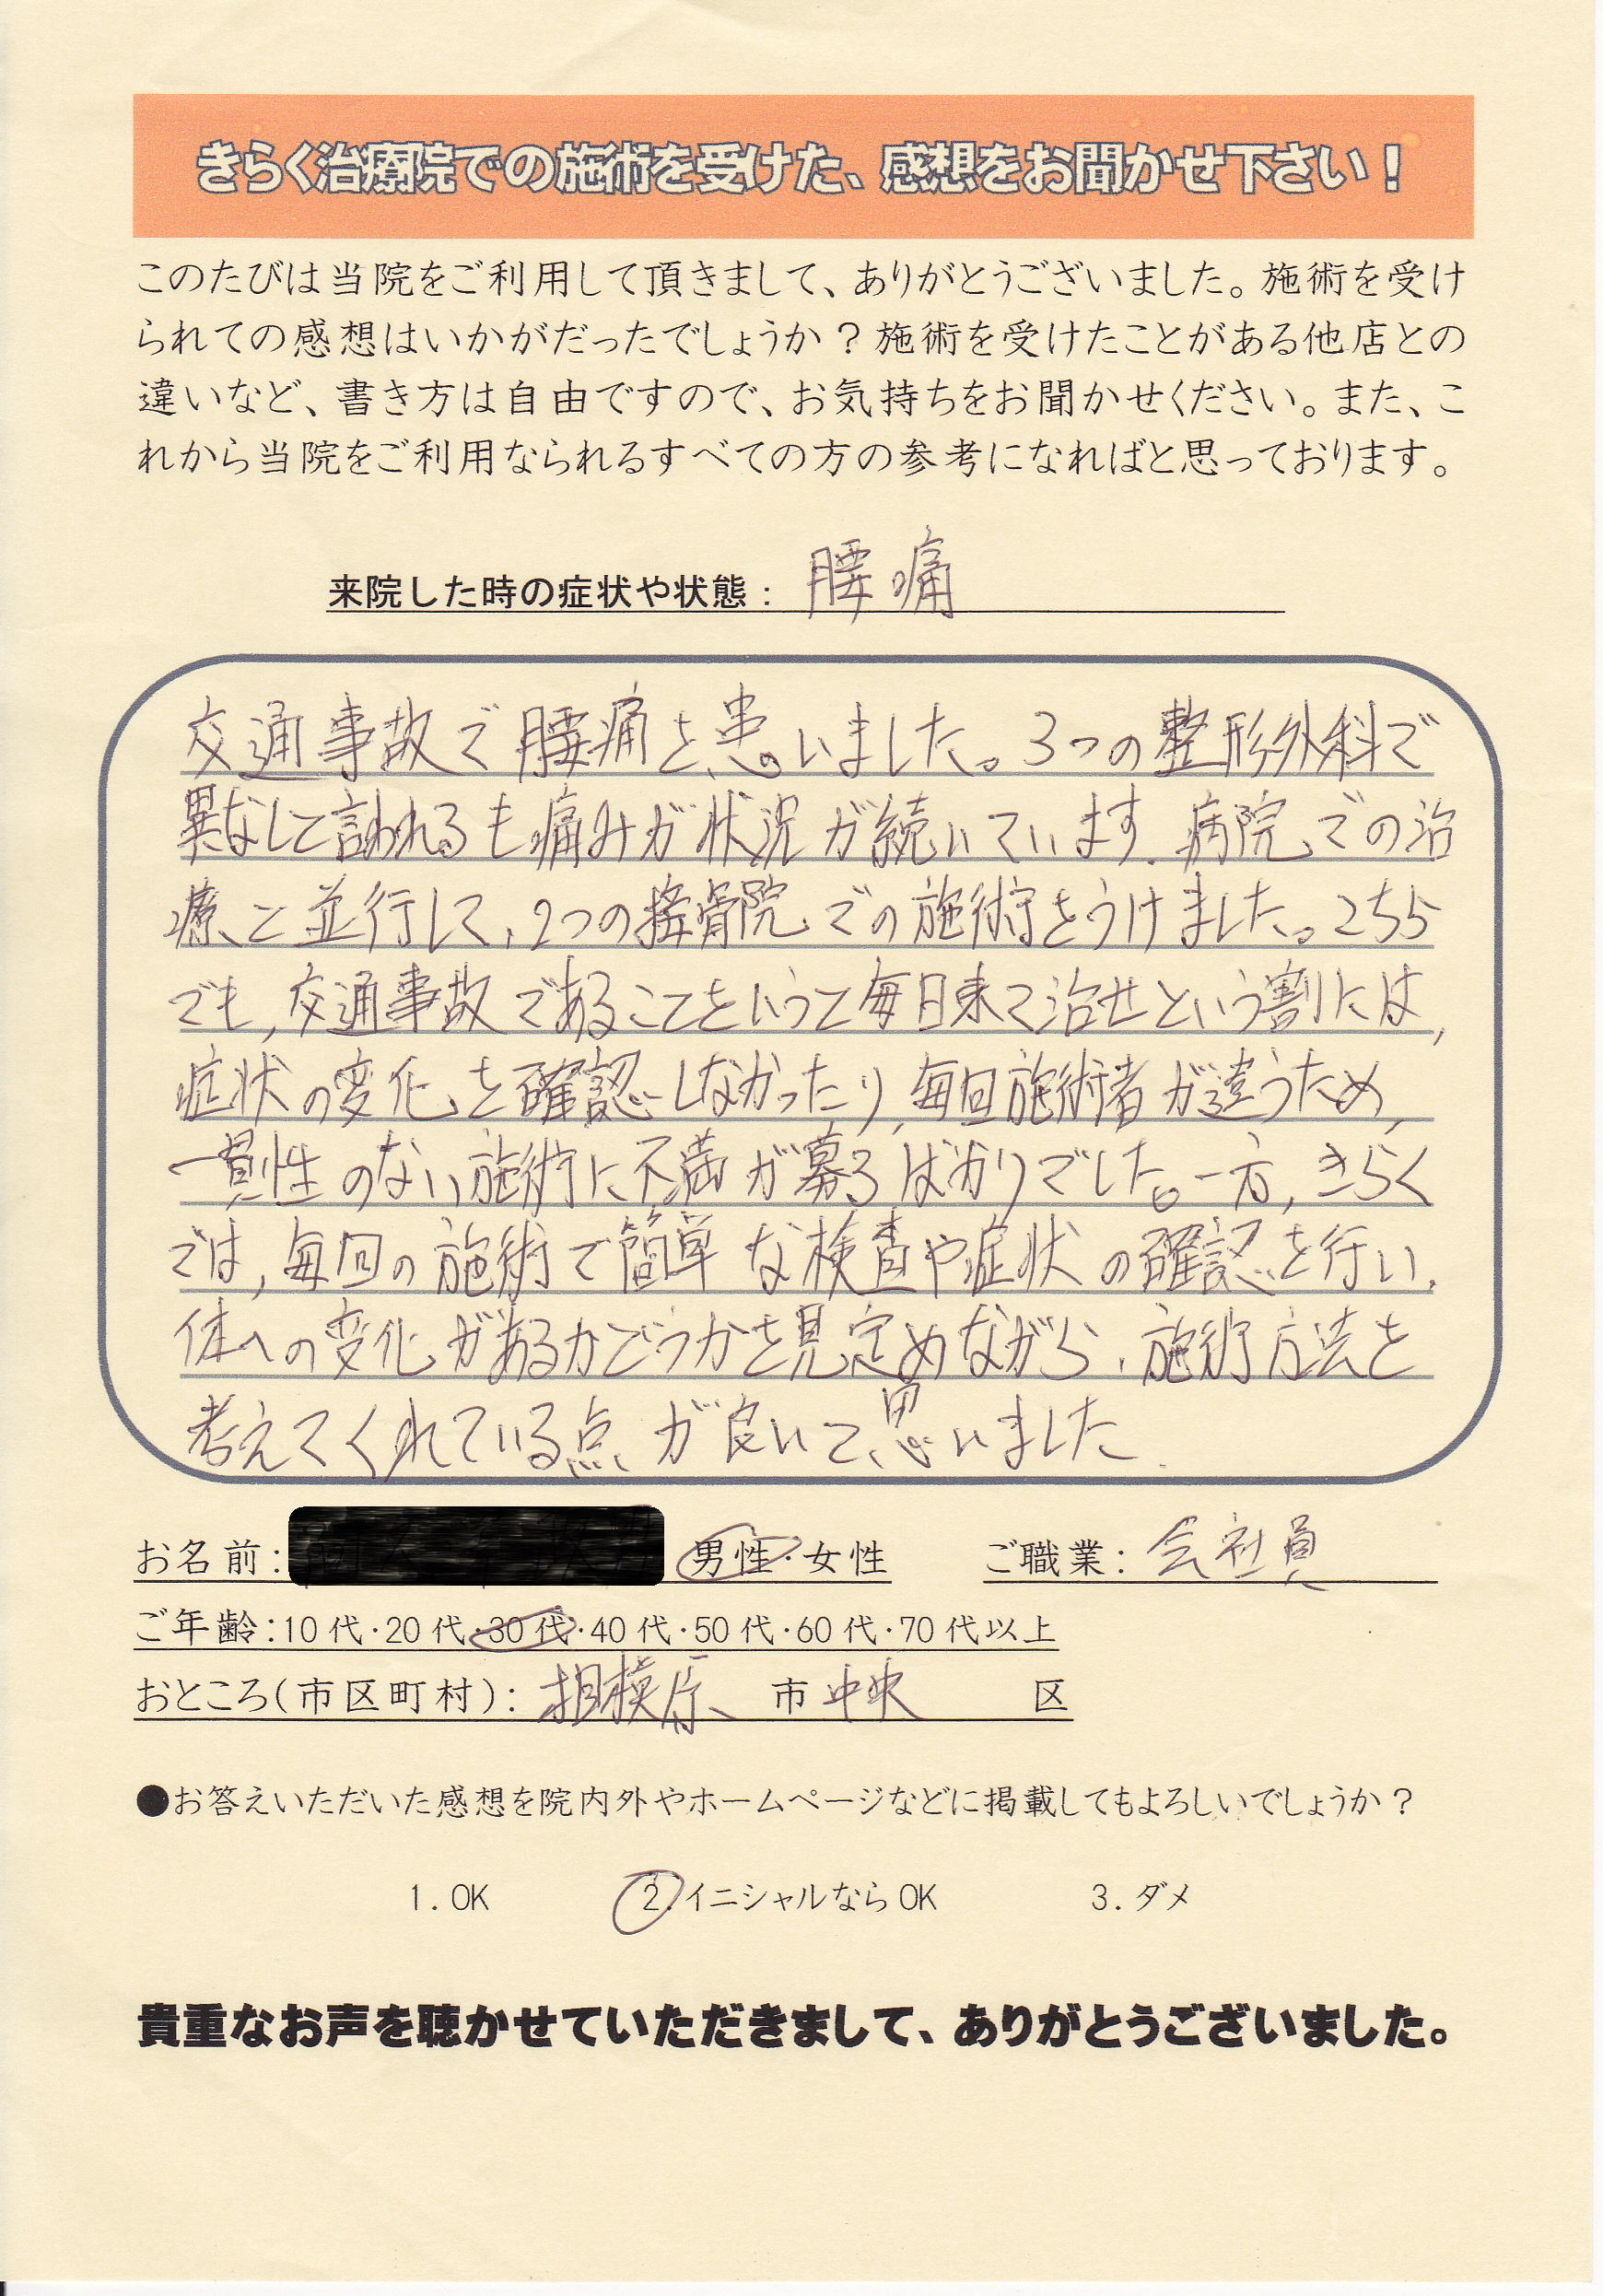 きらく治療院での施術を受けた、感想をお聞かせ下さい！
このたびは当院をご利用して頂きまして、ありがとうございました。施術を受け
られての感想はいかがだったでしょうか？施術を受けたことがある他店との
違いなど、書き方は自由ですので、お気持ちをお聞かせください。また、こ
れから当院をご利用なられるすべての方の参考になればと思っております。
来院した時の症状や状態： 腰痛
交通事故で腰痛を患いました。3つの整形外科で
異なしと言われるも痛みが状況が続いています. 病院での治
療と並行して, 2つの接骨院での施術をうけました。こちら
でも, 交通事故であることをいうと毎日来て治せという割には,
症状の変化を確認しなかったり, 毎回施術者が違うため,
一貫性のない施術に不満が募るばかりでした。一方, きらく
では, 毎回の施術で簡単な検査や症状の確認を行い,
体への変化があるかどうかを見定めながら, 施術方法を
考えてくれている点が良いと思いました.
お名前： 男性・女性 ご職業： 会社員
ご年齢：10代・20代・30代・40代・50代・60代・70代以上
おところ（市区町村）： 相模原 市 中央 区
●お答えいただいた感想を院内外やホームページなどに掲載してもよろしいでしょうか？
1. OK 2. イニシャルならOK 3. ダメ
貴重なお声を聴かせていただきまして、ありがとうございました。